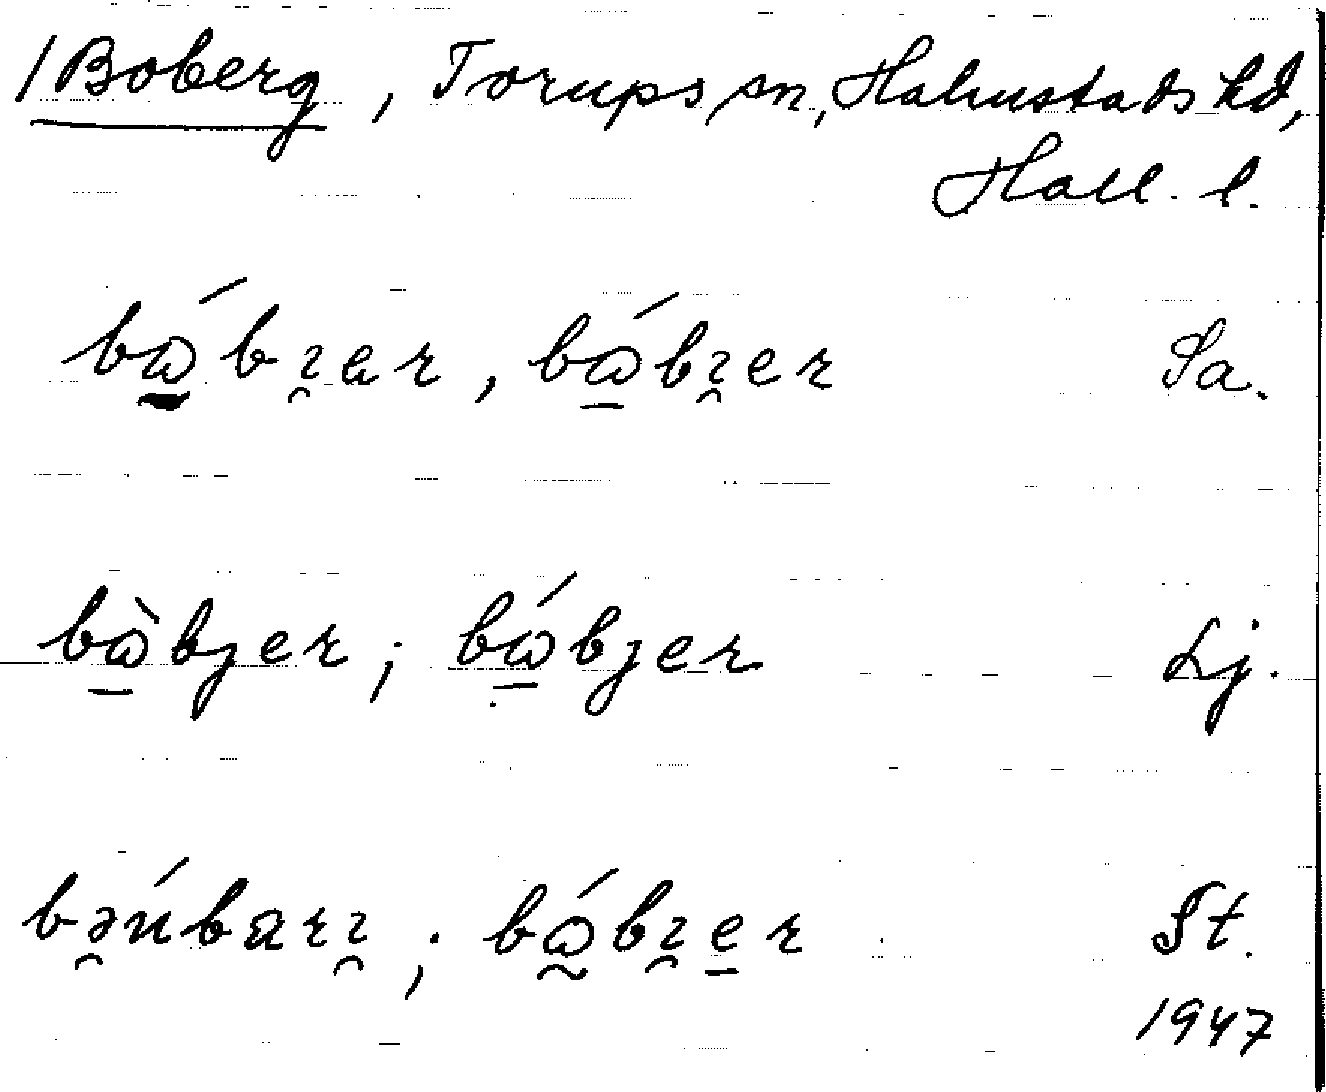 /Boberg, Torups sn, Halmstads hd,
Hall. l.
bɷ̲́bı̯ɑr, bɷ̲́bı̯er Sa.
bɷ̲̀bjer; bɷ̲́bjer Lj.
bə̯ńbɑrı̯; bɷ̰́bı̯e̲r St.
1947